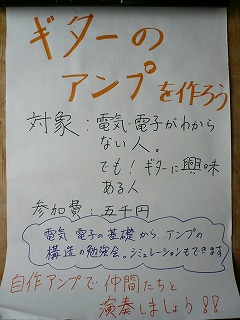 ギターの
アンプを作ろう
対象：電気・電子がわから
ない人。
でも！ギターに興味
ある人
参加費：五千円
電気電子の基礎から、アンプの
構造の勉強会。シュミレーションもできます
自作アンプで仲間たちと
演奏しましょう!!